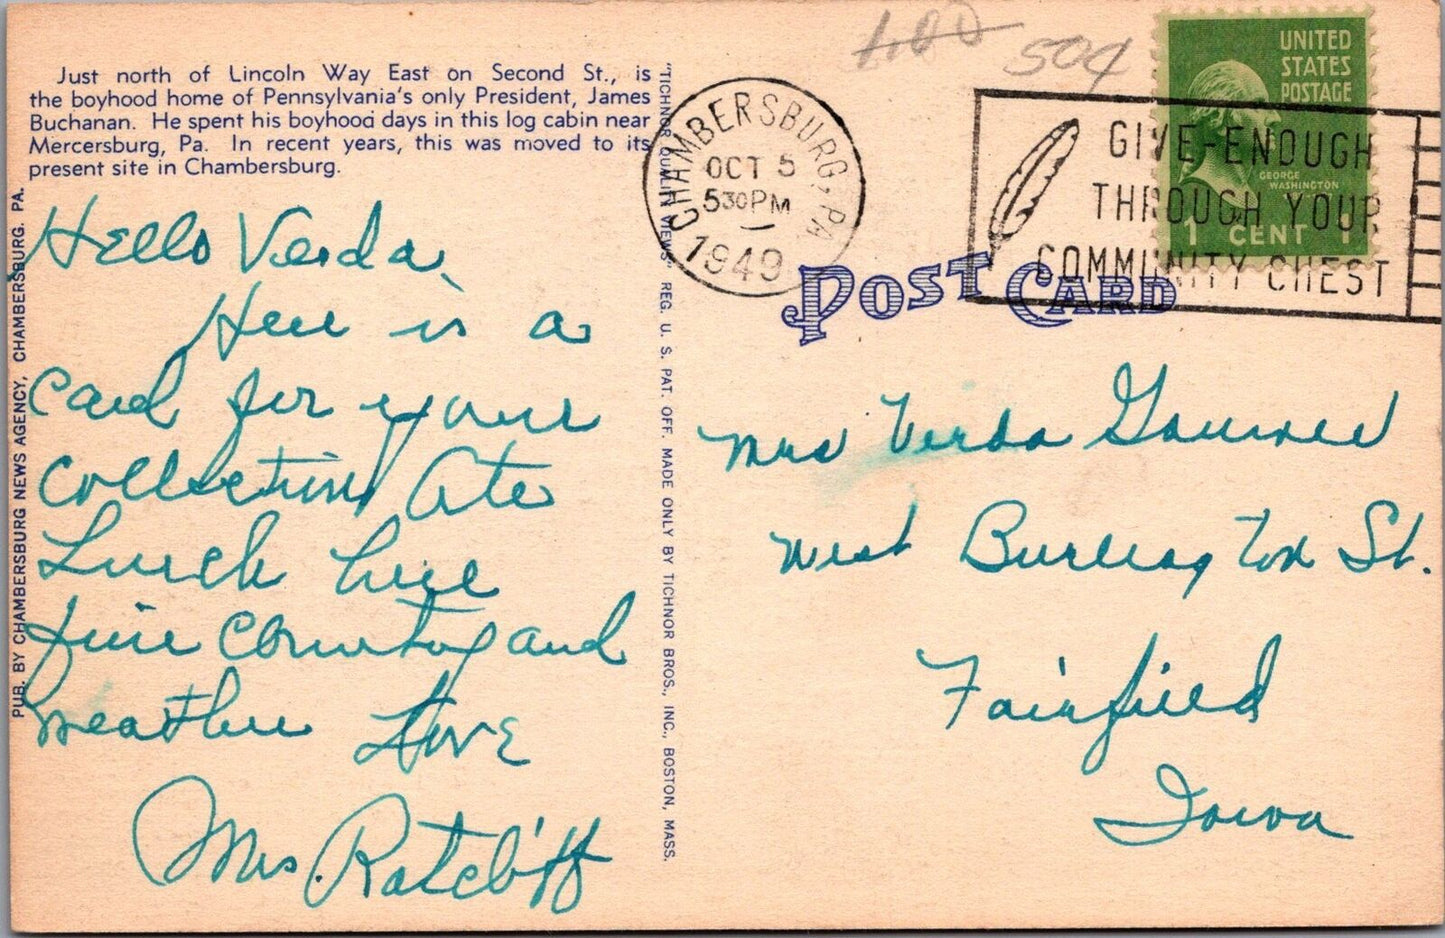 Just north of Lincoln Way East on Second St., is
the boyhood home of Pennsylvania's only President, James
Buchanan. He spent his boyhood days in this log cabin near
Mercersburg, Pa. In recent years, this was moved to its
present site in Chambersburg.
Hello Verda,
Here is a
Card for your
Collection Ate
Lunch here
fine Country and
weather Love
Mrs. Ratcliff
PUB. BY CHAMBERSBURG NEWS AGENCY, CHAMBERSBURG, PA.
"TICHNOR QUALITY VIEWS" REG. U. S. PAT. OFF. MADE ONLY BY TICHNOR BROS., INC., BOSTON, MASS.
1.00 50¢
CHAMBERSBURG, PA.
OCT 5
530PM
1949
GIVE-ENOUGH
THROUGH YOUR
COMMUNITY CHEST
UNITED
STATES
POSTAGE
GEORGE
WASHINGTON
1 CENT 1
POST CARD
Mrs Verda
West Burlington St.
Fairfield
Iowa